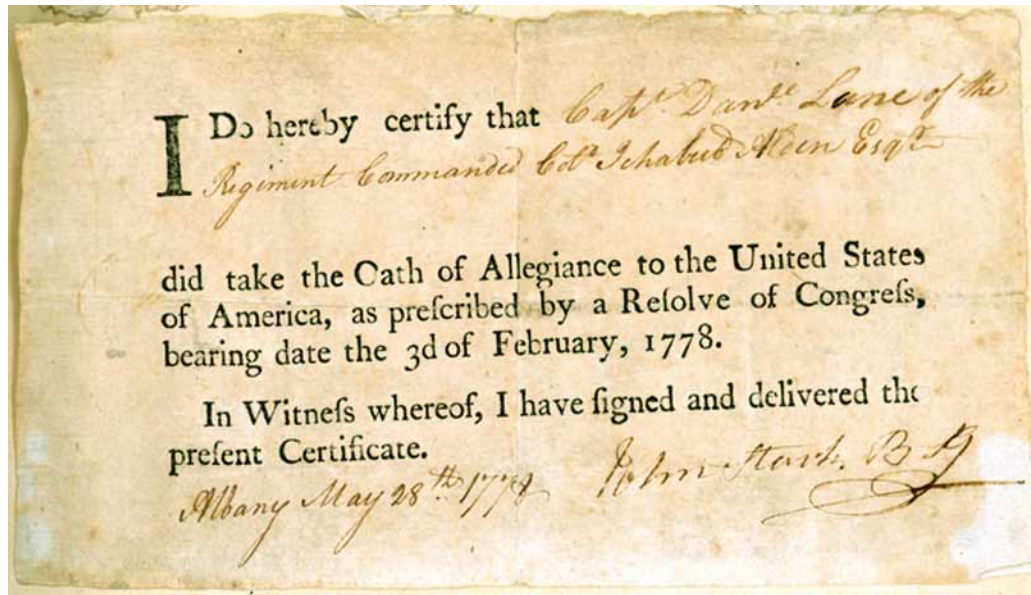 I Do hereby certify that Capt. Danl. Lane of the
Regiment Commanded Col.o Ichabud Alden Esqr.
did take the Oath of Allegiance to the United States
of America, as preſcribed by a Reſolve of Congreſs,
bearing date the 3d of February, 1778.
In Witneſs whereof, I have ſigned and delivered the
preſent Certificate.
Albany May 28th 1778 John Stark. B G